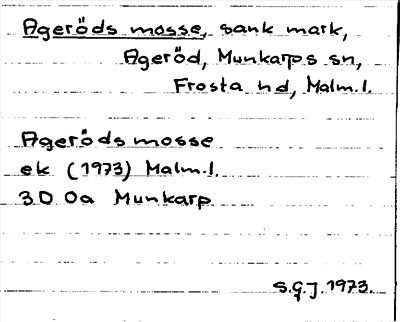 Ageröds mosse, sank mark,
Ageröd, Munkarps sn,
Frosta hd, Malm.l.
Ageröds mosse
ek (1973) Malm.l.
3D 0a Munkarp
S.G.J. 1973.